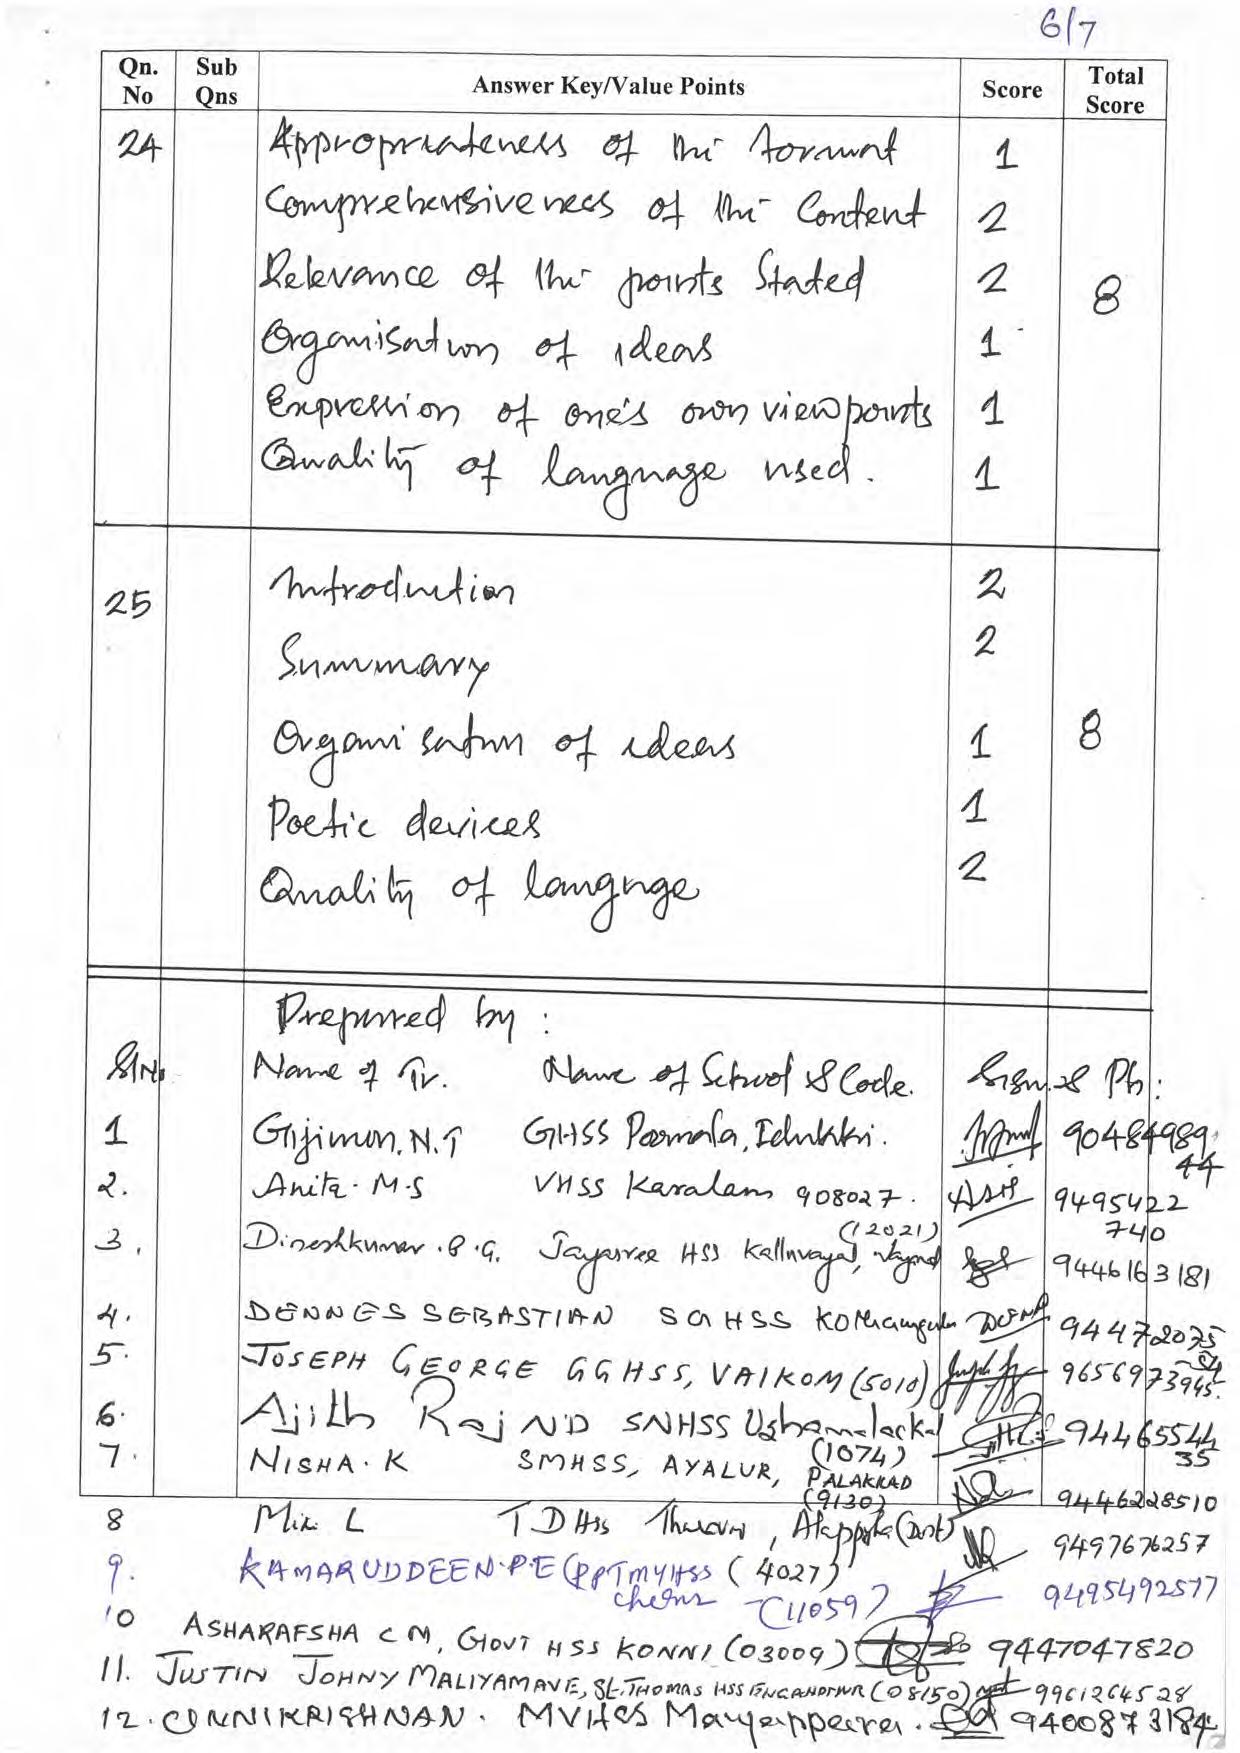 6/7
Qn. No Sub Qns Answer Key/Value Points Score Total Score
24 Appropriateness of the format 1
Comprehensiveness of the Content 2
Relevance of the points Stated 2 8
Organisation of ideas 1
Expression of one's own view points 1
Quality of language used. 1
25 Introduction 2
Summary 2
Organisation of ideas 1 8
Poetic devices 1
Quality of langnge 2
Prepared by :
Sl No Name of Tr. Name of School & Code. Sign. & Ph:
1 Gijimon. N.T GHSS Idukki. 90484989 44
2. Anita. M.S VHSS Karalam 908027. 9495422 740
3. Dineshkumar. P.G. Jayasree HSS Kalluvayal, (12021) 9446163181
4. DENNES SEBASTIAN SGHSS 94472035
5. JOSEPH GEORGE GGHSS, VAIKOM (5010) 9656973945.
6. Ajith Raj ND SNHSS (1074) 94465544 35
7. NISHA. K SMHSS, AYALUR, PALAKKAD (9130) 9446228510
8 Mini L TDHSS Alappuzha (Dist) 9497676257
9. KAMARUDDEEN. P. E (PPTMYHSS (4027) (11059) 9495492577
10 ASHARAFSHA C M, GOVT HSS KONNI (03009) 9447047820
11. JUSTIN JOHNY MALIYAMAVE, St. THOMAS HSS (08150) 9961264528
12. UNNIKRISHNAN. 9400873184